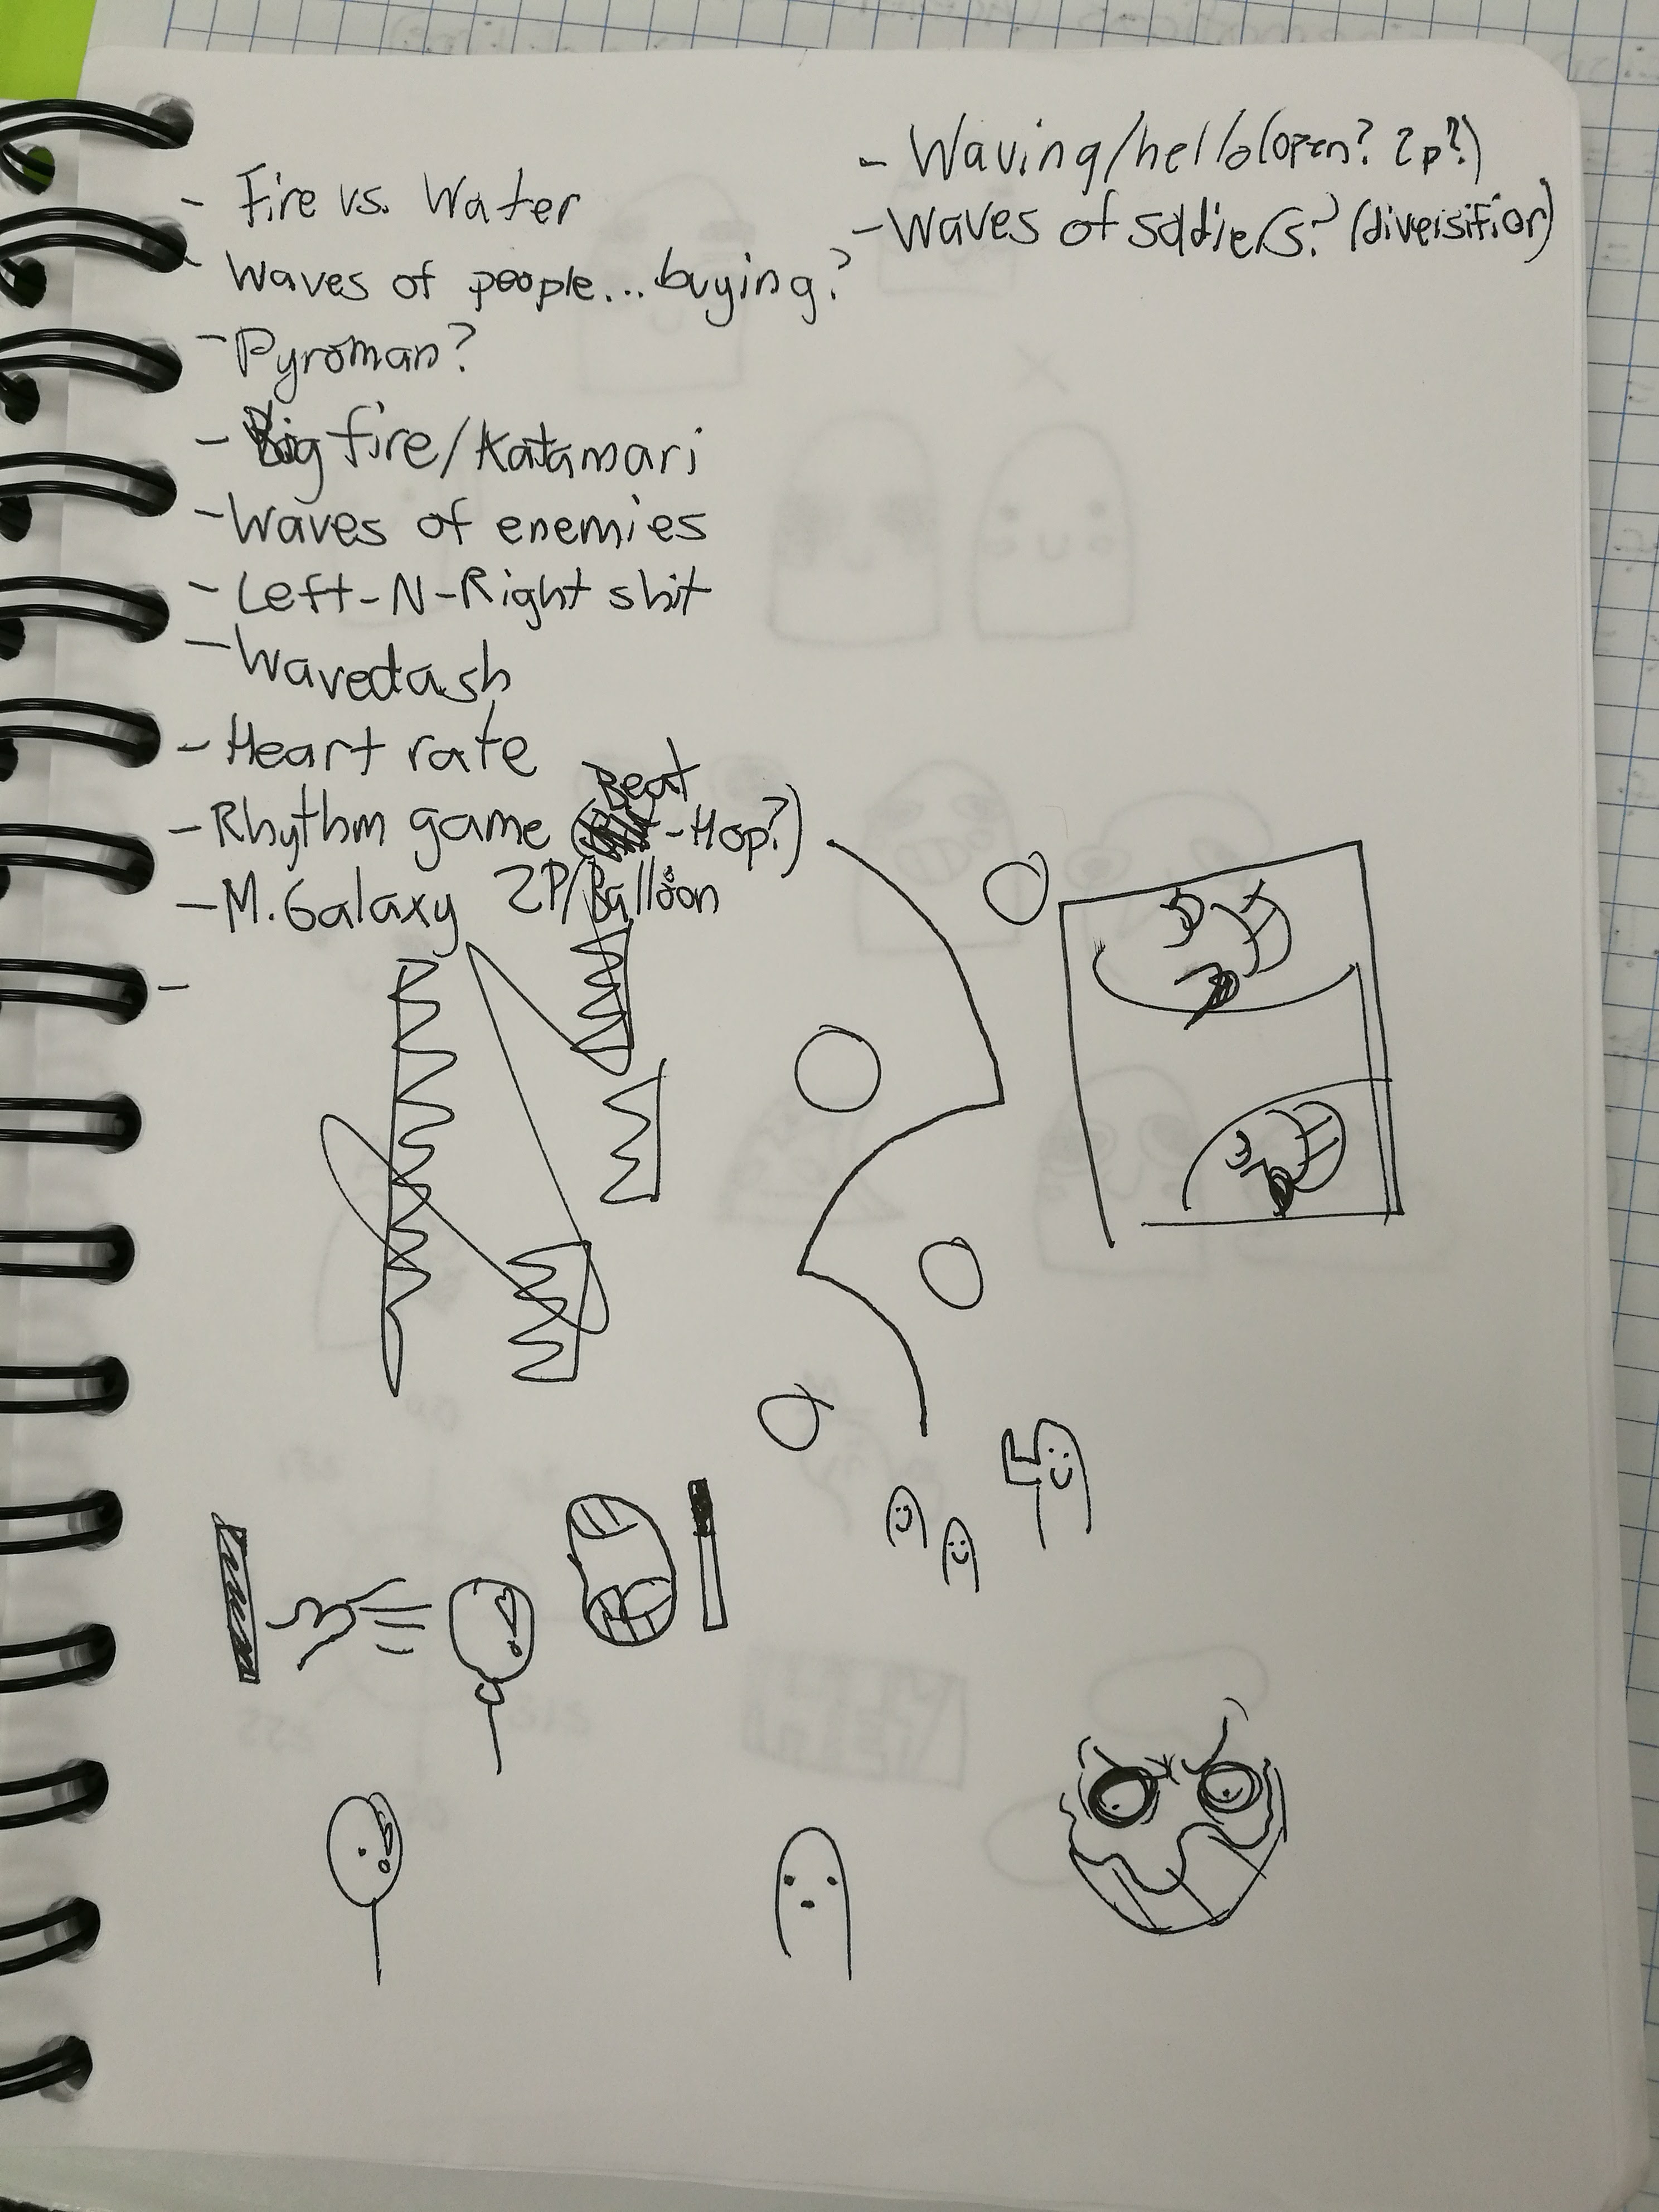 - Fire vs. Water
- Waves of people...buying?
- Pyroman?
- Big fire/Katamari
- Waves of enemies
- Left-N-Right shit
- Wavedash
- Heart rate
- Rhythm game (Beat-Hop?)
- M. Galaxy 2P/Balloon
-
- Waving/hello(open? 2p?)
- Waves of soldiers? (diversifier)